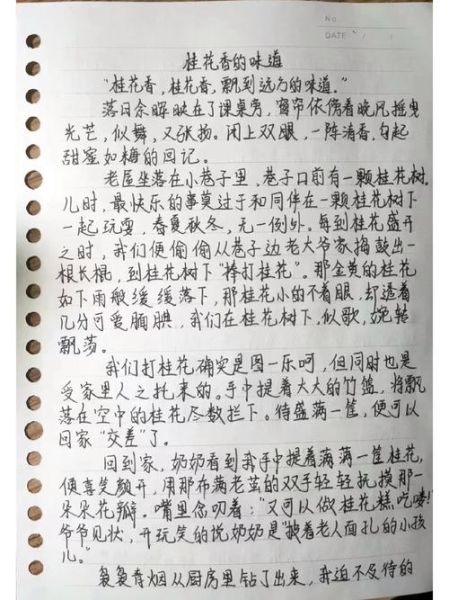 No
DATE / /
桂花香的味道
“桂花香，桂花香，飘到远方的味道。”
落日余晖映在了课桌旁，窗帘依傍着晚风摇曳
光芒，似舞，又张扬。闭上双眼，一阵清香，勾起
甜蜜如梅的回记。
老屋坐落在小巷子里，巷子口前有一颗桂花树。
儿时，最快乐的事莫过于和同伴在一颗桂花树下
一起玩耍，春夏秋冬，无一例外。每到桂花盛开
之时，我们便偷偷从巷子边老大爷家捣鼓出一
根长棍，到桂花树下“棒打桂花”。那金黄的桂花
如下雨般缓缓落下，那桂花小的不着眼，却透着
几分可爱腼腆，我们在桂花树下，似歌，婉转
飘荡。
我们打桂花确实是图一乐呵，但同时也是
受家里人之托来的。手中提着大大的竹篮，将飘
落在空中的桂花尽数拦下。待盛满一筐，便可以
回家“交差”了。
回到家，奶奶看到我手中提着满满一筐桂花，
便喜笑颜开，用那布满老茧的双手轻轻抚摸那一
朵朵花瓣。嘴里念叨着：“又可以做桂花糕吃喽！”
爷爷见状，开玩笑的说奶奶是“披着老人面孔的小孩
儿。”
袅袅青烟从厨房里钻了出来，我迫不及待的